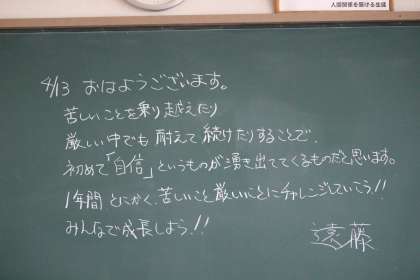 人間関係を築ける生徒
4/13 おはようございます。
苦しいことを乗り越えたり
厳しい中でも耐えて続けたりすることで、
初めて「自信」というものが湧き出ててくるものだと思います。
1年間とにかく、苦しいこと厳しいことにチャレンジしていこう!!
みんなで成長しよう!!
遠藤